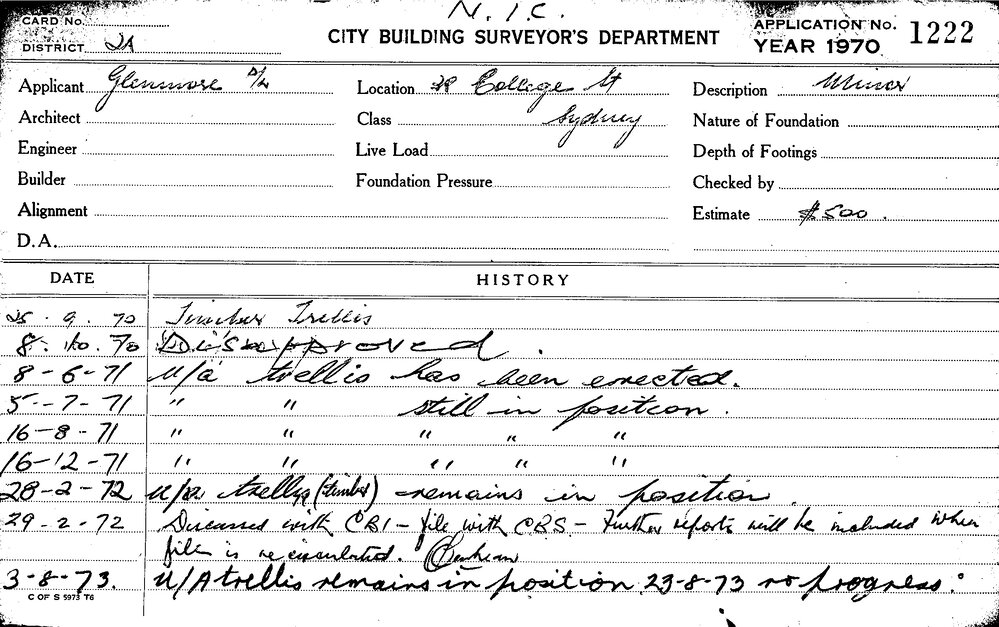 N.I.C.
CARD No.
DISTRICT 2A
CITY BUILDING SURVEYOR'S DEPARTMENT
APPLICATION No. 1222
YEAR 1970
Applicant Glenmore P/L
Location 28 College St
Description Minor
Architect
Class Sydney
Nature of Foundation
Engineer
Live Load
Depth of Footings
Builder
Foundation Pressure
Checked by
Alignment
Estimate $500.
D.A.
DATE HISTORY
25.9.70 Timber Trellis
8.10.70 Disapproved.
8-6-71 U/a trellis has been erected.
5-7-71 " " still in position.
16-8-71 " " " " "
16-12-71 " " " " "
28-2-72 U/a trellis (timber) remains in position.
29-2-72 Discussed with CBI - file with CBS - Further reports will be included when
file is recirculated.
3-8-73. U/A trellis remains in position 23-8-73 no progress.
C OF S 5973 T6